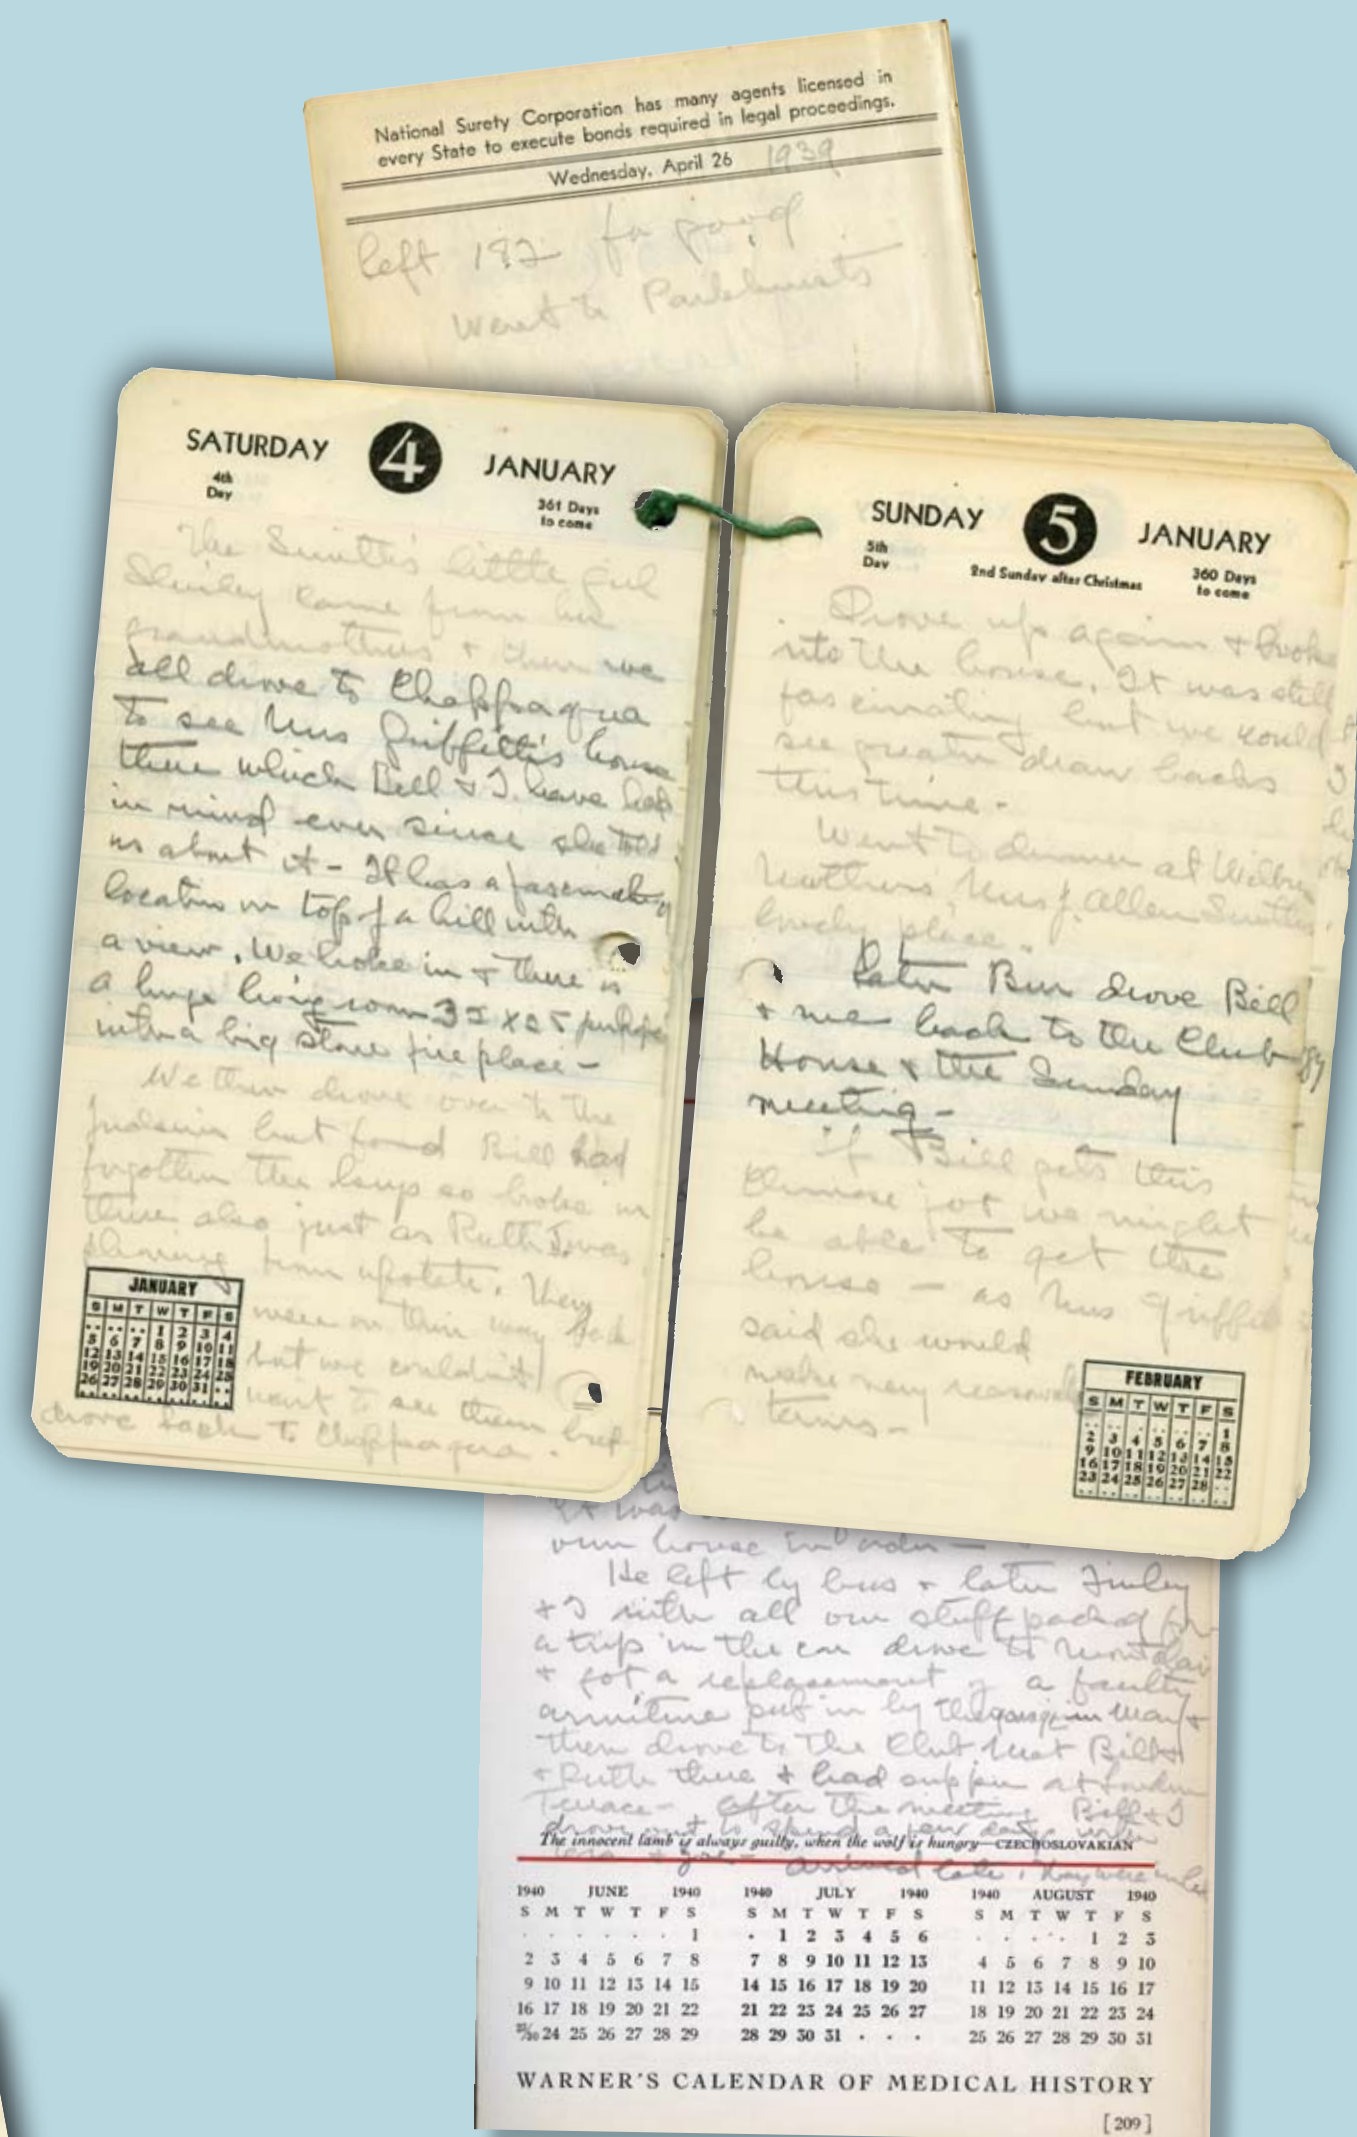 National Surety Corporation has many agents licensed in
every State to execute bonds required in legal proceedings.
Wednesday, April 26 1939
left 182 for good
Went to Parkhursts
SATURDAY 4 JANUARY
4th
Day
361 Days
to come
The Smith's little girl
Shirley came from her
grandmothers + then we
all drove to Chappaqua
to see Mrs Griffith's house
there which Bill & I have had
in mind ever since she told
us about it - It has a fascinating
location on top of a hill with
a view. We broke in + there is
a huge living room 35 x 25 perhaps
with a big stone fire place -
We then drove over to the
but found Bill had
forgotten the keys so broke in
there also just as Ruth J. was
from upstate. They
were on their way back
but we couldn't
want to see them but
drove back to Chappaqua.
JANUARY
S M T W T F S
.. .. .. 1 2 3 4
5 6 7 8 9 10 11
12 13 14 15 16 17 18
19 20 21 22 23 24 25
26 27 28 29 30 31 ..
SUNDAY 5 JANUARY
5th
Day
2nd Sunday after Christmas
360 Days
to come
Drove up again + broke
into the house. It was still
fascinating but we could
see greater draw backs
this time -
Went to dinner at Wilbur
Mrs J. Allen Smith's
lovely place.
Later Bun drove Bill
+ me back to the Club
House + the Sunday
meeting -
If Bill gets this
Chinese job we might
be able to get the
house - as Mrs Griffith
said she would
make very reasonable
terms -
FEBRUARY
S M T W T F S
.. .. .. .. .. .. 1
2 3 4 5 6 7 8
9 10 11 12 13 14 15
16 17 18 19 20 21 22
23 24 25 26 27 28 ..
It was
own house in order -
He left by bus + later Finley
+ I with all our stuff packed for
a trip in the car drove to Montclair
+ got a replacement of a faulty
armature put in by the man +
then drove to the Club. Met Bill
+ Ruth there + had supper at London
Terrace - After the meeting Bill + I
drove out to spend a few days with
arrived late. They were
The innocent lamb is always guilty, when the wolf is hungry—CZECHOSLOVAKIAN
1940 JUNE 1940
S M T W T F S
. . . . . . 1
2 3 4 5 6 7 8
9 10 11 12 13 14 15
16 17 18 19 20 21 22
23/30 24 25 26 27 28 29
1940 JULY 1940
S M T W T F S
. 1 2 3 4 5 6
7 8 9 10 11 12 13
14 15 16 17 18 19 20
21 22 23 24 25 26 27
28 29 30 31 . . .
1940 AUGUST 1940
S M T W T F S
. . . . 1 2 3
4 5 6 7 8 9 10
11 12 13 14 15 16 17
18 19 20 21 22 23 24
25 26 27 28 29 30 31
WARNER'S CALENDAR OF MEDICAL HISTORY
[209]